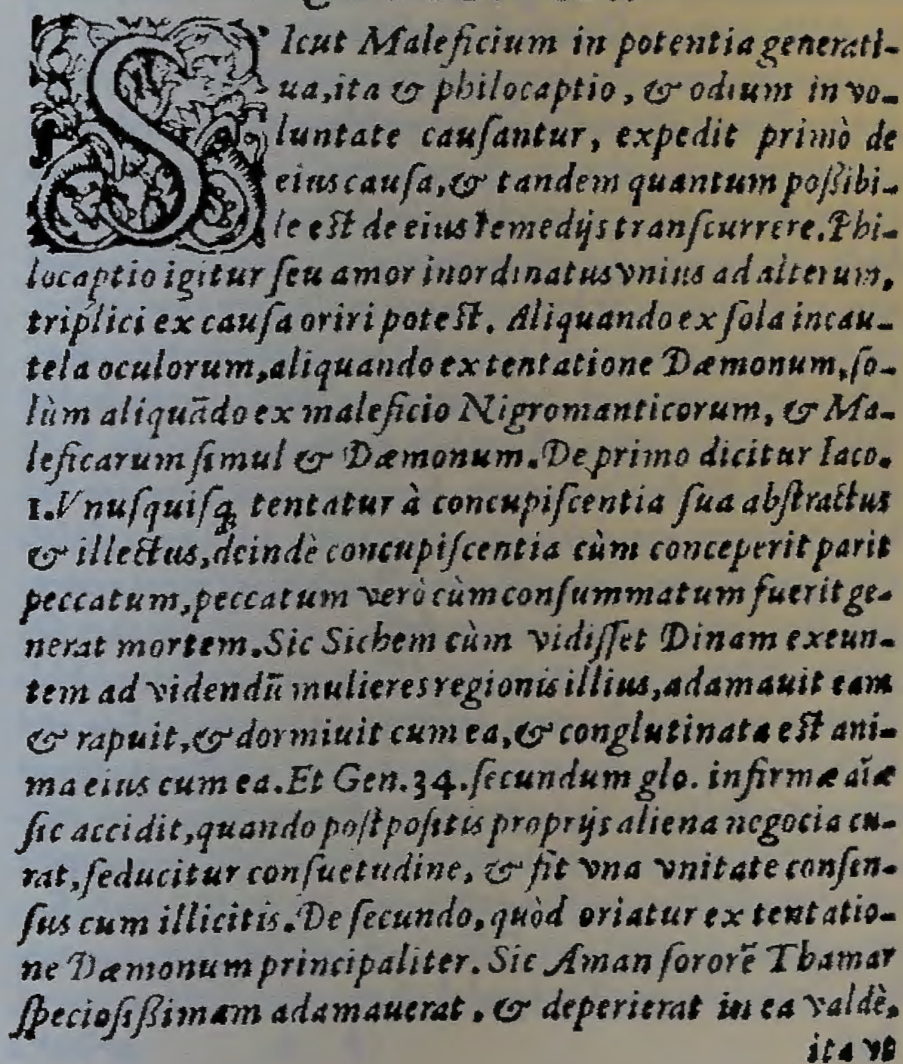 SIcut Maleficium in potentia generati-
ua,ita & philocaptio, & odium in vo-
luntate cauſantur, expedit primò de
eius cauſa,& tandem quantum poſsibi-
le eſt de eius remedijs tranſcurrere.Phi-
locaptio igitur ſeu amor inordinatus vnius ad alterum,
triplici ex cauſa oriri poteſt. Aliquando ex ſola incau-
tela oculorum,aliquando ex tentatione Dæmonum,ſo-
lùm aliquãdo ex maleficio Nigromanticorum, & Ma-
leficarum ſimul & Dæmonum.De primo dicitur Iaco.
1.Vnuſquiſq; tentatur à concupiſcentia ſua abſtractus
& illectus,deindè concupiſcentia cùm conceperit parit
peccatum,peccatum verò cùm conſummatum fuerit ge-
nerat mortem.Sic Sichem cùm vidiſſet Dinam exeun-
tem ad videndũ mulieres regionis illius,adamauit eam
& rapuit,& dormiuit cum ea,& conglutinata eſt ani-
ma eius cum ea.Et Gen.34.ſecundum glo. infirmæ aĩæ
ſic accidit,quando poſtpoſitis proprijs aliena negocia cu-
rat,ſeducitur conſuetudine, & fit vna vnitate conſen-
ſus cum illicitis.De ſecundo,quòd oriatur ex tentatio-
ne Dæmonum principaliter. Sic Aman ſororẽ Thamar
ſpecioſiſsimam adamauerat, & deperierat in ea valdè,
ita vt